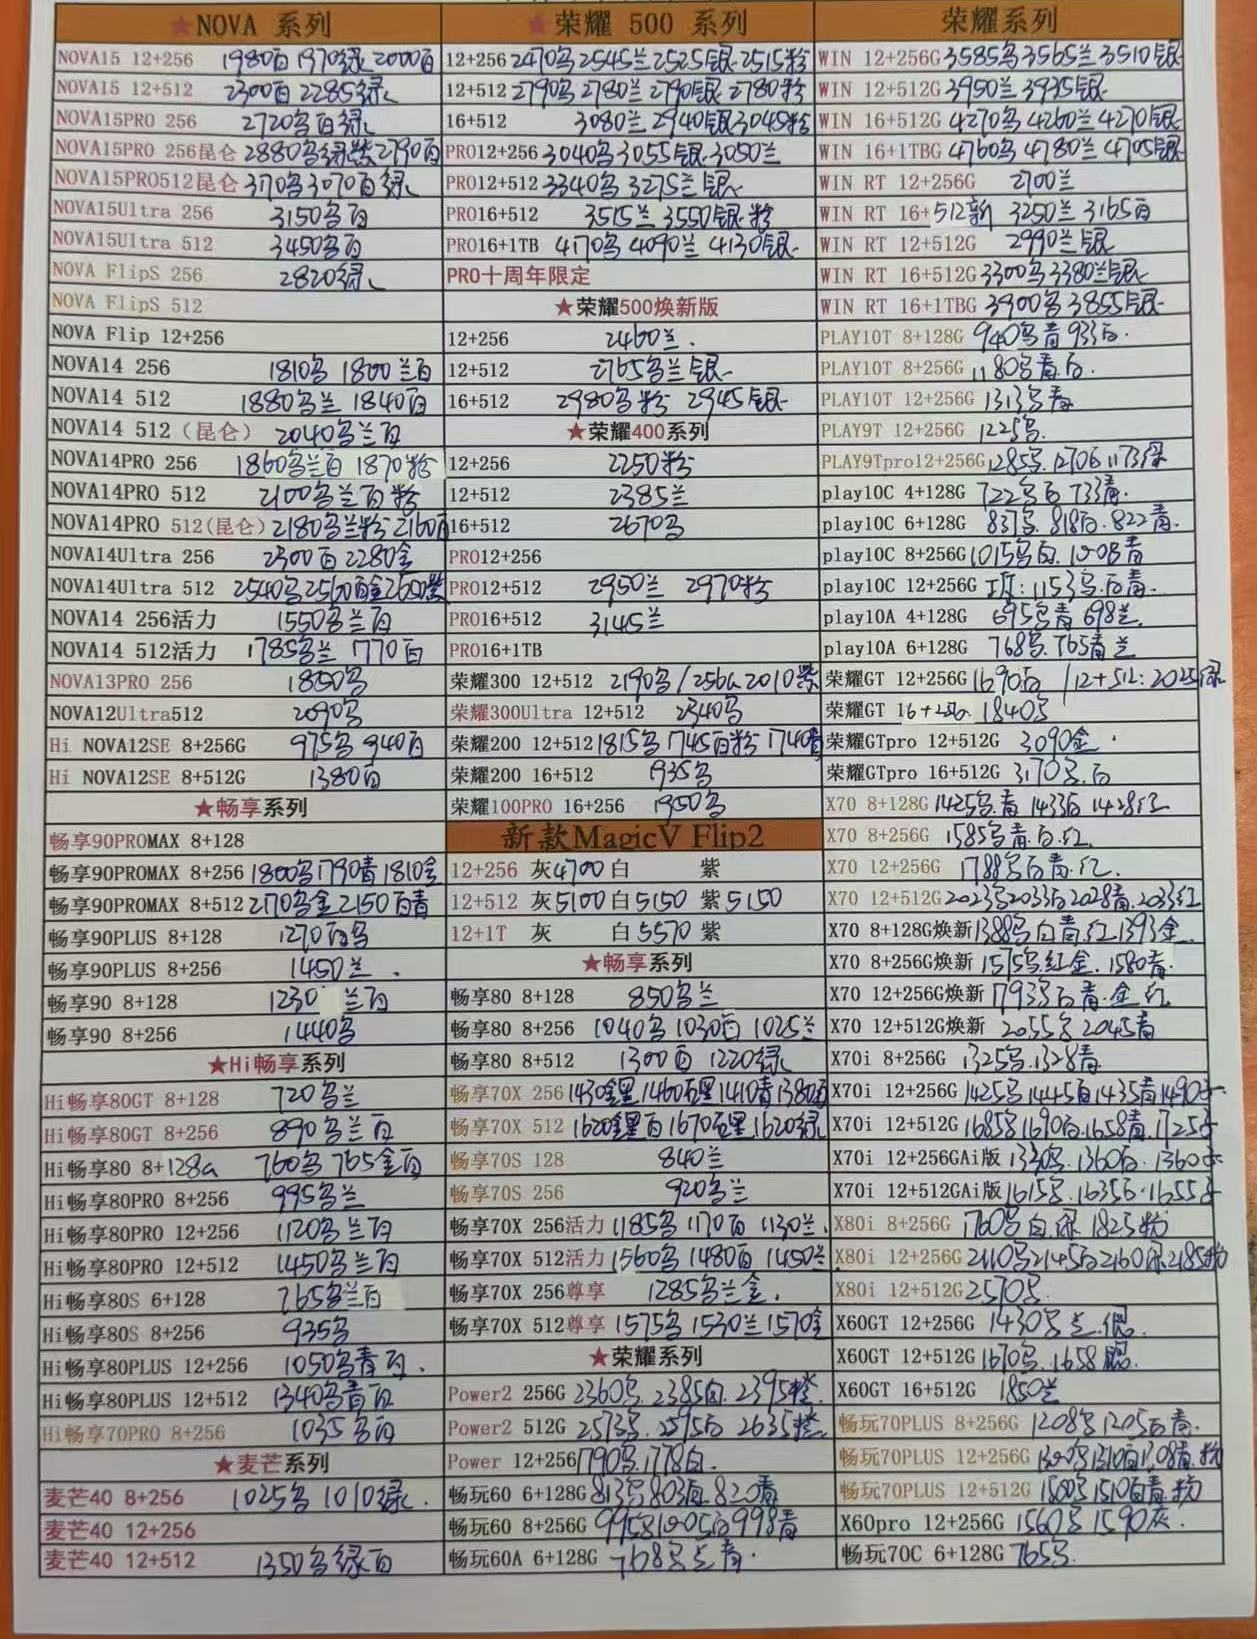 ★NOVA 系列
NOVA15 12+256 1980百 1970绿 2000百
NOVA15 12+512 2300百 2285绿
NOVA15PRO 256 2720乌百绿
NOVA15PRO 256昆仑 2880乌绿紫2790百
NOVA15PRO512昆仑 3170乌3070百绿
NOVA15Ultra 256 3150乌百
NOVA15Ultra 512 3450乌百
NOVA FlipS 256 2820绿
NOVA FlipS 512
NOVA Flip 12+256
NOVA14 256 1810乌 1800兰百
NOVA14 512 1880乌兰 1840百
NOVA14 512（昆仑） 2040乌兰百
NOVA14PRO 256 1860乌兰百 1870粉
NOVA14PRO 512 2100乌兰百粉
NOVA14PRO 512(昆仑) 2180乌兰粉 2160百
NOVA14Ultra 256 2300百 2280金
NOVA14Ultra 512 2540乌2560百金2650紫
NOVA14 256活力 1550乌兰百
NOVA14 512活力 1785乌兰 1770百
NOVA13PRO 256 1850乌
NOVA12Ultra512 2090乌
Hi NOVA12SE 8+256G 975乌 940百
Hi NOVA12SE 8+512G 1380百
★畅享系列
畅享90PROMAX 8+128
畅享90PROMAX 8+256 1800乌1790青1810金
畅享90PROMAX 8+512 2170乌金2150百青
畅享90PLUS 8+128 1270百乌
畅享90PLUS 8+256 1450兰
畅享90 8+128 1230 兰百
畅享90 8+256 1440乌
★Hi畅享系列
Hi畅享80GT 8+128 720乌兰
Hi畅享80GT 8+256 890乌兰百
Hi畅享80 8+128G 760乌 765金百
Hi畅享80PRO 8+256 995乌兰
Hi畅享80PRO 12+256 1120乌兰百
Hi畅享80PRO 12+512 1450乌兰百
Hi畅享80S 6+128 765乌兰百
Hi畅享80S 8+256 935乌
Hi畅享80PLUS 12+256 1050乌青百
Hi畅享80PLUS 12+512 1340乌青百
Hi畅享70PRO 8+256 1035乌百
★麦芒系列
麦芒40 8+256 1025乌 1010绿
麦芒40 12+256
麦芒40 12+512 1350乌绿百
★荣耀 500 系列
12+256 2470乌2545兰2525银2515粉
12+512 2790乌 2780兰 2790银 2780粉
16+512 3080兰 2940银3045粉
PRO12+256 3040乌3055银3050兰
PRO12+512 3340乌 3275兰银
PRO16+512 3515兰 3550银粉
PRO16+1TB 4170乌 4090兰 4130银
PRO十周年限定
★荣耀500焕新版
12+256 2460兰
12+512 2765乌兰银
16+512 2980乌粉 2945银
★荣耀400系列
12+256 2250粉
12+512 2385兰
16+512 2670乌
PRO12+256
PRO12+512 2950兰 2970粉
PRO16+512 3145兰
PRO16+1TB
荣耀300 12+512 2190乌/256G 2010紫
荣耀300Ultra 12+512 2340乌
荣耀200 12+512 1815乌1745百粉1740青
荣耀200 16+512 1935乌
荣耀100PRO 16+256 1950乌
新款MagicV Flip2
12+256 灰4700 白 紫
12+512 灰5100 白5150 紫5150
12+1T 灰 白5570 紫
★畅享系列
畅享80 8+128 850乌兰
畅享80 8+256 1040乌1030百 1025兰
畅享80 8+512 1300百 1220绿
畅享70X 256 1430金黑1460石黑1410青1380百
畅享70X 512 1620金黑百1670石黑1620绿
畅享70S 128 840兰
畅享70S 256 920乌兰
畅享70X 256活力 1185乌 1170百 1130兰
畅享70X 512活力 1560乌 1480百 1450兰
畅享70X 256尊享 1285乌兰金
畅享70X 512尊享 1575乌 1530兰1570金
★荣耀系列
Power2 256G 2360乌.2385白.2395橙
Power2 512G 2573乌.2595白 2635橙
Power 12+256 1790乌.1778白
畅玩60 6+128G 813乌803白820青
畅玩60 8+256G 995乌1005白998青
畅玩60A 6+128G 768乌兰青
荣耀系列
WIN 12+256G 3585乌3565兰3510银
WIN 12+512G 3950兰 3935银
WIN 16+512G 4270乌 4260兰 4270银
WIN 16+1TBG 4760乌 4780兰 4705银
WIN RT 12+256G 2700兰
WIN RT 16+512新 3250兰 3165百
WIN RT 12+512G 2990兰银
WIN RT 16+512G 3300乌3380兰银
WIN RT 16+1TBG 3900乌3855银
PLAY10T 8+128G 940乌青 933白
PLAY10T 8+256G 1180乌青白
PLAY10T 12+256G 1313乌青
PLAY9T 12+256G 1225乌
PLAY9Tpro12+256G 1285乌
play10C 4+128G 722乌白 733青
play10C 6+128G 837乌 818白 822青
play10C 8+256G 1015乌白 1008青
play10C 12+256G 1153乌白青
play10A 4+128G 695乌青 698兰
play10A 6+128G 768乌 765青兰
荣耀GT 12+256G 1690白 /12+512:2025绿
荣耀GT 16+256 1840乌
荣耀GTpro 12+512G 3090金
荣耀GTpro 16+512G 3170乌.白
X70 8+128G 1425乌.青 1433白 1428红
X70 8+256G 1585乌青.白.红
X70 12+256G 1788乌白青.红
X70 12+512G 2023乌2033白2028青.2033红
X70 8+128G焕新 1388乌白青.红.1393金
X70 8+256G焕新 1575乌红金.1580青
X70 12+256G焕新 1793乌白青.金.红
X70 12+512G焕新 2055乌 2045青
X70i 8+256G 1325乌.1328青
X70i 12+256G 1425乌1445白1435青1490
X70i 12+512G 1685乌1690白.1658青.1725
X70i 12+256GAi版 1330乌.1360白.1360
X70i 12+512GAi版 1615乌.1635白.1655
X80i 8+256G 1760乌白.绿 1825粉
X80i 12+256G 2110乌2145白2160绿2185粉
X80i 12+512G 2570乌
X60GT 12+256G 1430乌兰.银
X60GT 12+512G 1670乌.1658银
X60GT 16+512G 1850兰
畅玩70PLUS 8+256G 1208乌1205白青
畅玩70PLUS 12+256G 1300乌1310白1308青.粉
畅玩70PLUS 12+512G 1500乌1510白青.粉
X60pro 12+256G 1560乌1590灰
畅玩70C 6+128G 765乌